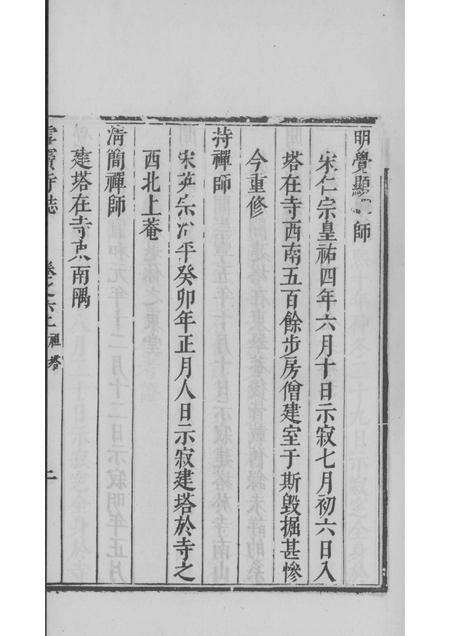 明覺顯禪師
宋仁宗皇祐四年六月十日示寂七月初六日入
塔在寺西南五百餘步房僧建室于斯毀掘甚慘
今重修
持禪師
宋英宗治平癸卯年正月人日示寂建塔於寺之
西北上菴
清簡禪師
建塔在寺東南隅
雪竇寺誌 卷之六 祖塔 二